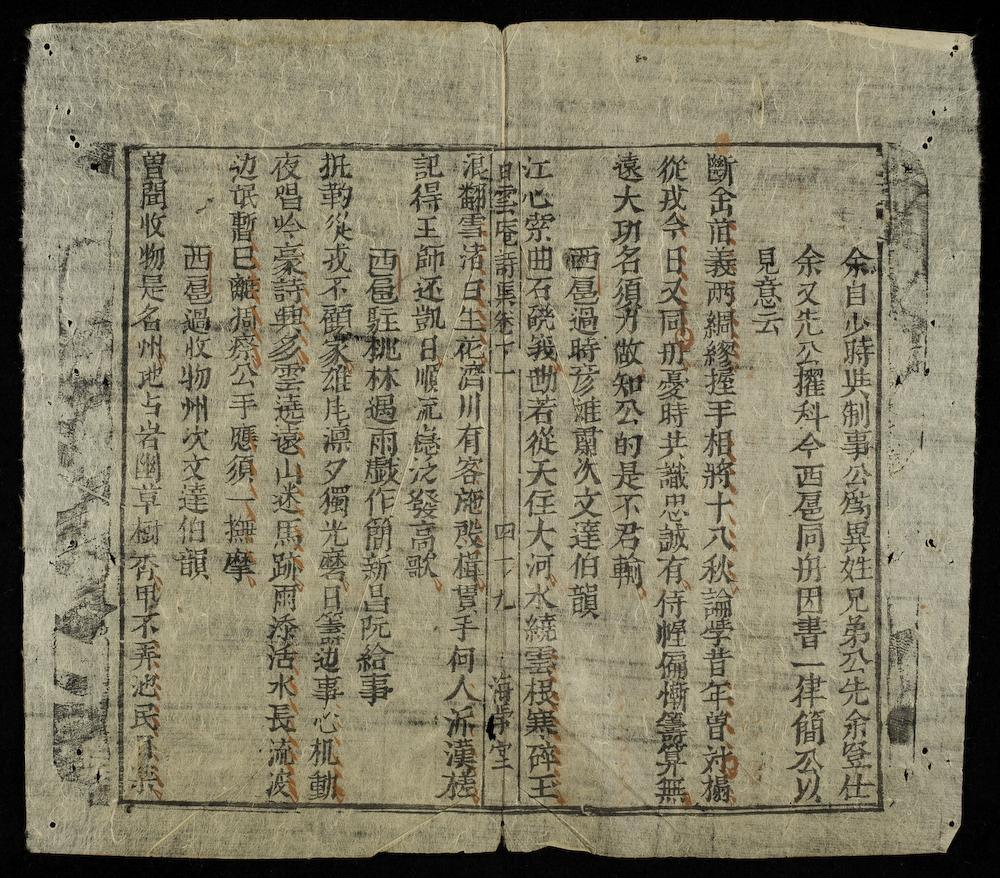 余自少時與制事公為異姓兄弟公先余登仕
余又先公擢科今西扈同舟因書一律簡公以
見意云
斷金前義兩綢繆握手相將十八秋論學昔年曾对榻
從戎今日又同舟憂時共識忠誠有侍幄偏慚籌算無
遠大功名須力做知公的是不君輸
西扈過時彦灘肅次文達伯韻
江心縈曲石磽義勢若從天任大河水繞雲根寒碎玉
白雲庵詩集卷下
四十九
海學堂
浪翻雪渚日生花濟川有客施殷楫貫手何人泝漢槎
記得王師还凱日順流穩泛發高歌
西扈駐桃林遇雨戲作簡新昌阮給事
扺勒從戎不顧家雄肝凛夕獨光磨日籌边事心机動
夜唱吟豪詩興多雲遶遠山迷馬跡雨添活水長流波
边氓暫已離凋瘵公手應須一撫摩
西扈過收物州次文達伯韻
曾聞收物是名州地占岩幽草樹香甲不弄池民